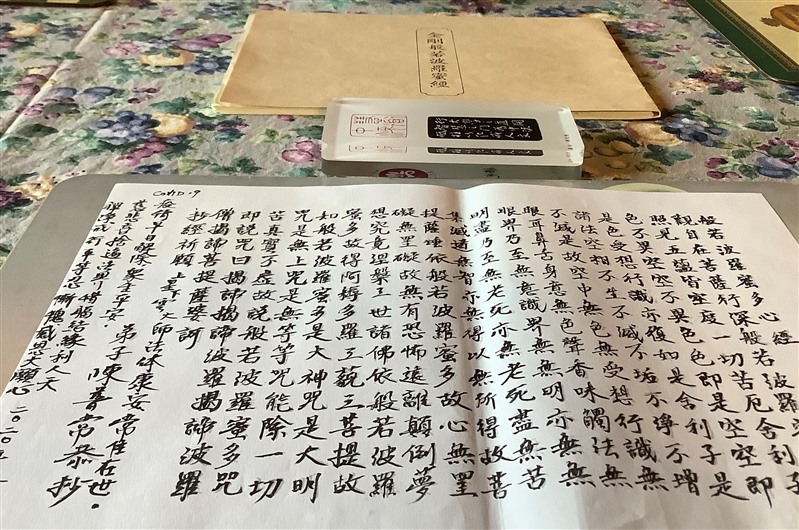 金剛般若波羅蜜經
般若波羅蜜多心經
觀自在菩薩行深般若波羅蜜
照見五蘊皆空度一切苦厄舍利子
色不異空空不異色色即是空空即
是色受想行識亦復如是舍利子是
諸法空相不生不滅不垢不淨不增
不滅是故空中無色無受想行識無
眼耳鼻舌身意無色聲香味觸法無
眼界乃至無意識界無無明亦無無
明盡乃至無老死亦無老死盡無苦
集滅道無智亦無得以無所得故菩
提薩埵依般若波羅蜜多故心無罣
礙無罣礙故無有恐怖遠離顛倒夢
想究竟涅槃三世諸佛依般若波羅
蜜多故得阿耨多羅三藐三菩提故
知般若波羅蜜多是大神咒是大明
咒是無上咒是無等等咒能除一切
苦真實不虛故說般若波羅蜜多咒
即說咒曰揭諦揭諦波羅揭諦波羅
僧揭諦菩提薩婆訶
抄經祈願 上星下雲大師法体康安常住在世。
疫情早日解除眾生平安。 弟子陳音常恭抄
慈悲喜捨遍法界惜福結緣利人天
禪淨戒行平等忍慚愧感恩大願心 二〇二〇年